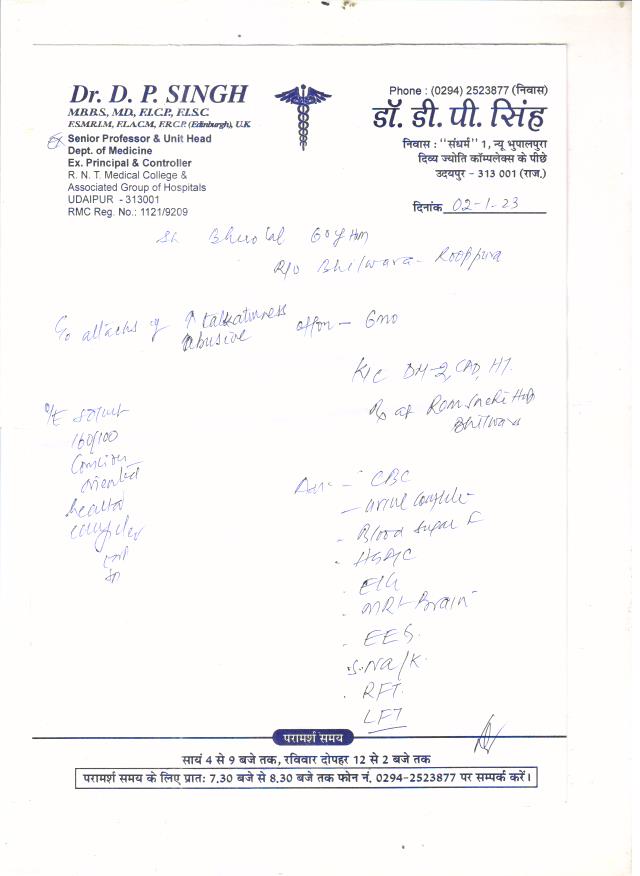 Dr. D. P. SINGH
M.B.B.S., M.D., F.I.C.P., F.I.S.C.
F.S.M.R.I.M., F.I.A.C.M., F.R.C.P. (Edinburgh), U.K
Ex Senior Professor & Unit Head
Dept. of Medicine
Ex. Principal & Controller
R. N. T. Medical College &
Associated Group of Hospitals
UDAIPUR - 313001
RMC Reg. No.: 1121/9209
Phone : (0294) 2523877 (निवास)
डॉ. डी. पी. सिंह
निवास : "संधर्म" 1, न्यू भुपालपुरा
दिव्य ज्योति कॉम्पलेक्स के पीछे
उदयपुर - 313 001 (राज.)
दिनांक 02-1-23
R/o Bhilwara - Rooppura
C/o attacks of ↑ talkativeness
abusive
offon - 6mo
K/C DM-2, CAD, HT.
Rx at Ramsnehi Hos
Bhilwara
O/E
160/100
Conscious
oriented
- CBC
- urine complete
- Blood sugar F
- HbA1C
- ECG
- MRI - Brain
- EEG.
- S. Na/K.
- RFT.
LFT
परामर्श समय
सायं 4 से 9 बजे तक, रविवार दोपहर 12 से 2 बजे तक
परामर्श समय के लिए प्रातः 7.30 बजे से 8.30 बजे तक फोन नं. 0294-2523877 पर सम्पर्क करें।